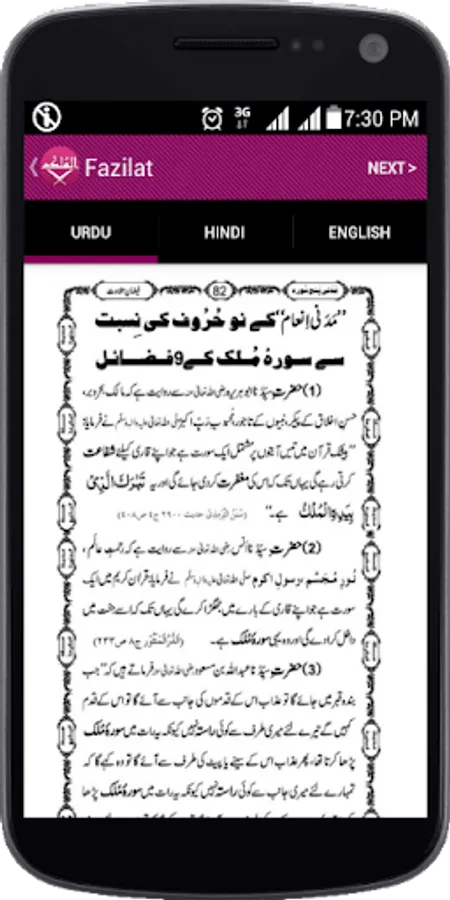 3G 7:30 PM
Fazilat NEXT>
URDU HINDI ENGLISH
82
"مَدَنی اِنعام" کے نو حُرُوف کی نِسبت
سے سورۂ مُلک کے 9 فضائل
(1) حضرتِ سیِّدُنا ابو ہریرہ رضی اللہ تعالیٰ عنہ سے روایت ہے کہ مالکِ بحروبر،
حسنِ اخلاق کے پیکر، نبیوں کے تاجور، محبوبِ ربِّ اکبر صلی اللہ تعالیٰ علیہ واٰلہٖ وسلم نے فرمایا:
"بیشک قرآن میں تیس آیتوں پر مشتمل ایک سورت ہے جو اپنے قاری کیلئے شفاعت
کرتی رہے گی یہاں تک کہ اس کی مغفرت کر دی جائے گی اور یہ تَبٰرَکَ الَّذِیْ
بِیَدِہِ الْمُلْکُ ہے۔"
(2) حضرتِ سیِّدُنا انس رضی اللہ تعالیٰ عنہ سے روایت ہے کہ رحمتِ عالَم،
نورِ مُجَسَّم، رسولِ اکرم صلی اللہ تعالیٰ علیہ واٰلہٖ وسلم نے فرمایا: قرآن کریم میں ایک
سورت ہے جو اپنے قاری کے بارے میں جھگڑا کرے گی یہاں تک کہ اسے جنت میں
داخل کرا دے گی اور وہ یہی سورۂ مُلک ہے۔
(3) حضرتِ سیِّدُنا عبداللہ بن مسعود رضی اللہ تعالیٰ عنہ فرماتے ہیں کہ "جب
بندہ قبر میں جائے گا تو عذاب اس کے قدموں کی جانب سے آئے گا تو اس کے قدم
کہیں گے تیرے لئے میری طرف سے کوئی راستہ نہیں کیونکہ یہ رات میں سورۂ مُلک
پڑھا کرتا تھا، پھر عذاب اس کے سینے یا پیٹ کی طرف سے آئے گا تو وہ کہے گا کہ
تمہارے لئے میری جانب سے کوئی راستہ نہیں کیونکہ یہ رات میں سورۂ مُلک پڑھا